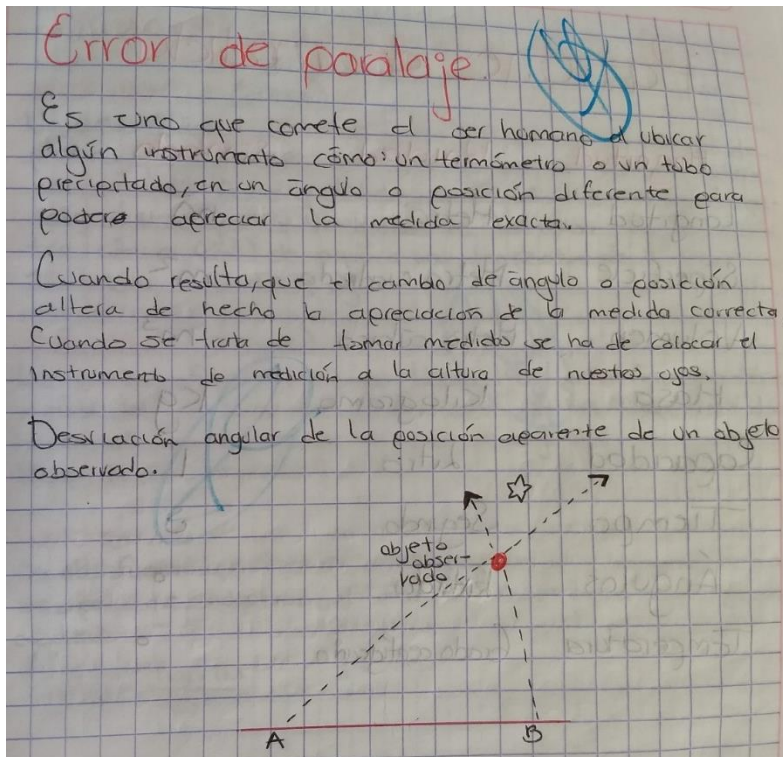 Error de paralaje.
Es uno que comete el ser humano al ubicar
algún instrumento cómo: un termómetro o un tubo
precipitado, en un ángulo o posición diferente para
poder apreciar la medida exacta.
Cuando resulta, que el cambio de ángulo o posición
altera de hecho la apreciación de la medida correcta
Cuando se trata de tomar medidas se ha de colocar el
instrumento de medición a la altura de nuestros ojos.
Desviación angular de la posición aparente de un objeto
observado.
objeto
obser-
vado
A
B